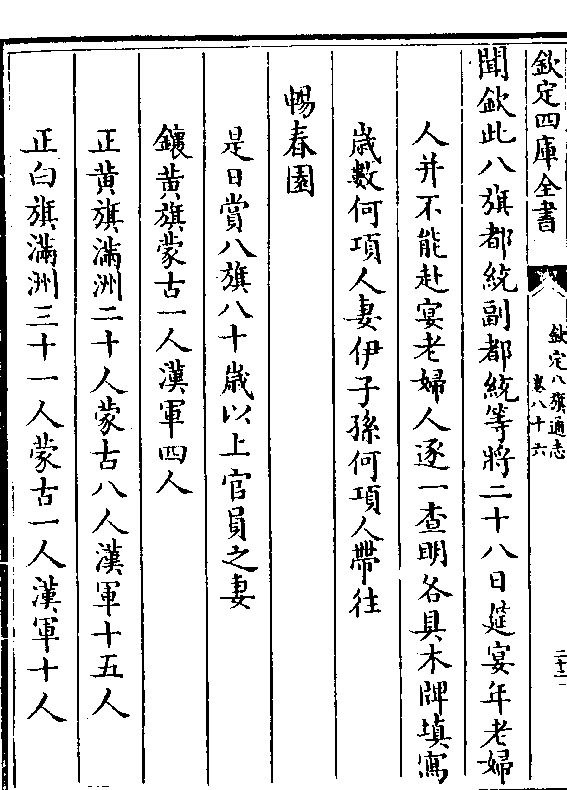 欽定四庫全書
欽定八旗通志
卷八十六
二十二
聞欽此八旗都統副都統等將二十八日筵宴年老婦
人并不能赴宴老婦人逐一查明各具木牌填寫
歲數何項人妻伊子孫何項人帶往
暢春園
是日賞八旗八十歲以上官員之妻
鑲黃旗蒙古一人漢軍四人
正黃旗滿洲二十人蒙古八人漢軍十五人
正白旗滿洲三十一人蒙古一人漢軍十人